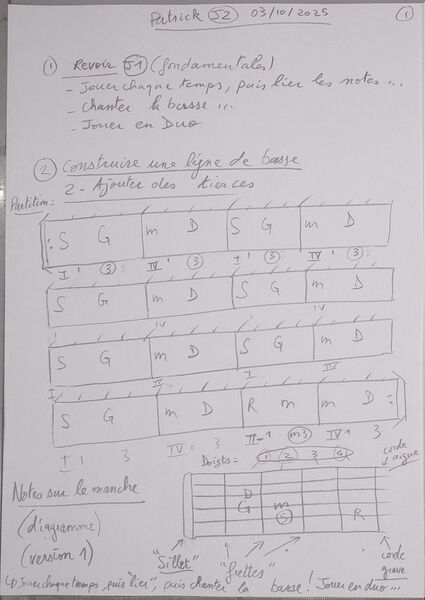 Patrick J2 03/10/2025 1
1 Revoir J1 (fondamentales)
- Jouer chaque temps, puis lier les notes ...
- Chanter la basse ...
- Jouer en Duo
2 Construire une ligne de basse
2 - Ajouter des tierces
Partition =
S G m D S G m D
I 1 3 IV 1 3 I 1 3 IV 1 3
S G m D S G m D
IV
S G m D S G m D
I IV
I
S G m D R m m D
I 1 3 IV 1 3 II-1 m3 IV 1 3
Doigts = 1 2 3 4
corde aigue
Notes sur le manche
(diagramme)
(version 1)
D
G m
S R
"Sillet" "frettes"
corde grave
↳ Jouer chaque temps, puis "lier", puis chanter la basse ! Jouer en duo ...